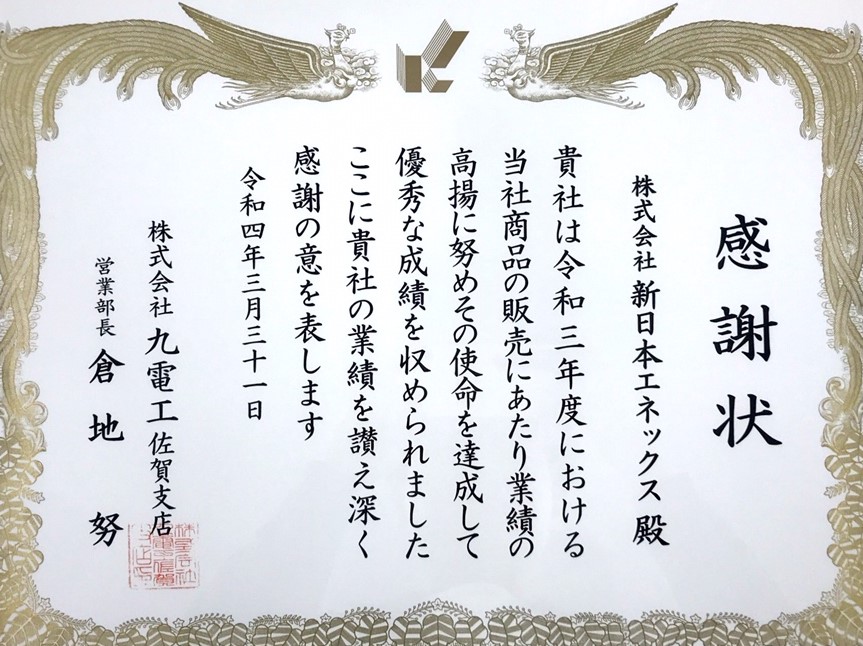 感謝状
株式会社 新日本エネックス 殿
貴社は令和三年度における
当社商品の販売にあたり業績の
高揚に努めその使命を達成して
優秀な成績を収められました
ここに貴社の業績を讃え深く
感謝の意を表します
令和四年三月三十一日
株式会社 九電工 佐賀支店
営業部長 倉地 努